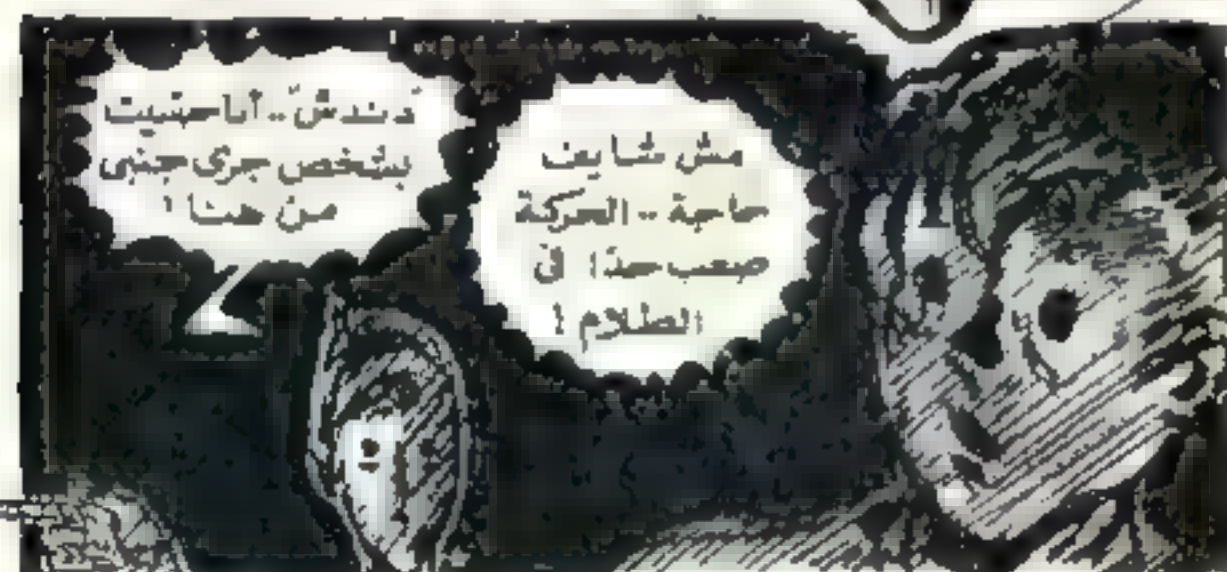 مش شايف
حاجة .. الحركة
صعب جدًا فى
الظلام !
"دندش" .. أنا حسيت
بشخص جرى جنبى
من هنا !